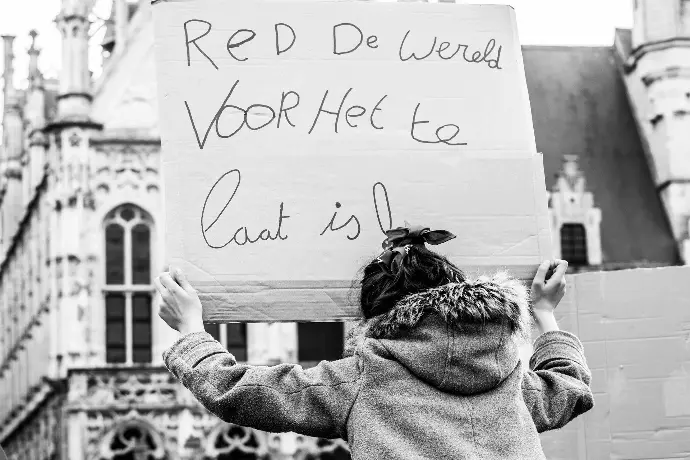 ReD De Wereld
VooR Het te
laat is!